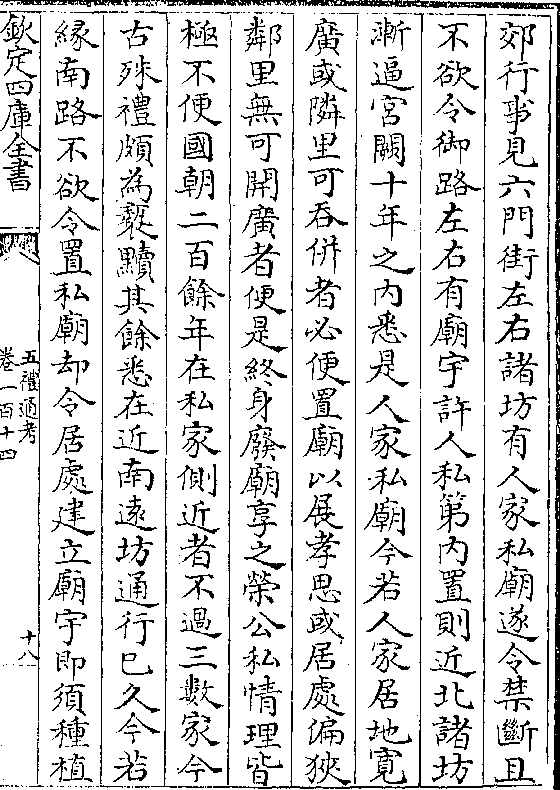 郊行事見六門街左右諸坊有人家私廟遂令禁斷且
不欲令御路左右有廟宇許人私第内置則近北諸坊
漸逼宮闕十年之内悉是人家私廟今若人家居地寛
廣或隣里可吞併者必便置廟以展孝思或居處偏狹
鄰里無可開廣者便是終身廢廟享之榮公私情理皆
極不便國朝二百餘年在私家側近者不過三數家今
古殊禮頗為䙝黷其餘悉在近南逺坊通行已久今若
縁南路不欲令置私廟却令居處建立廟宇即須種植
欽定四庫全書
五禮通考
卷一百十四
十八